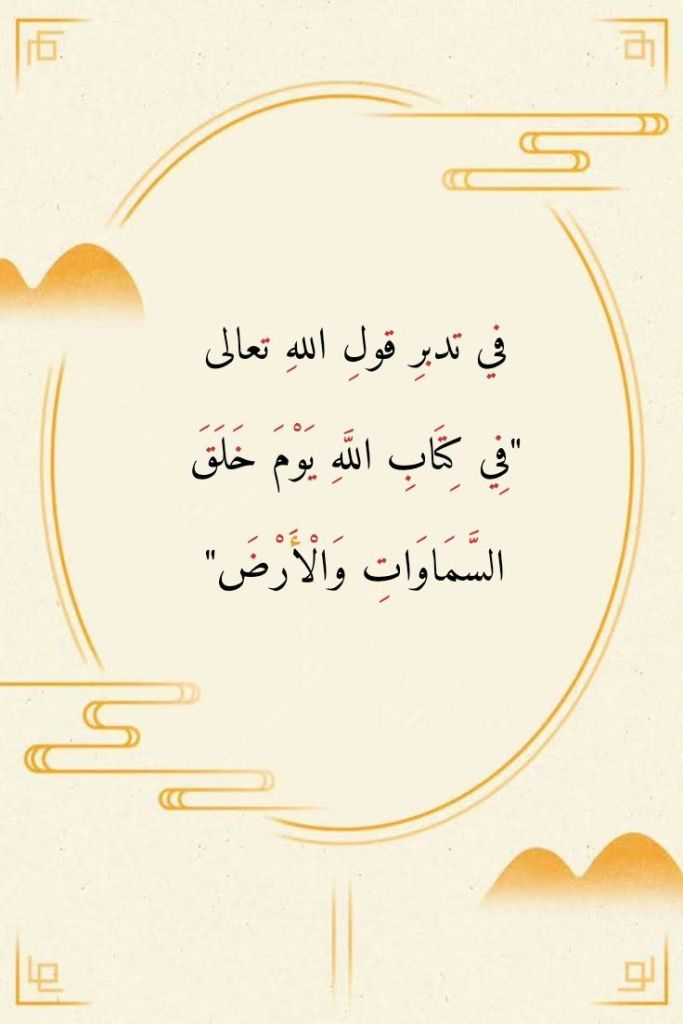 في تدبرِ قولِ اللهِ تعالى
"فِي كِتَابِ اللَّهِ يَوْمَ خَلَقَ
السَّمَاوَاتِ وَالْأَرْضَ"